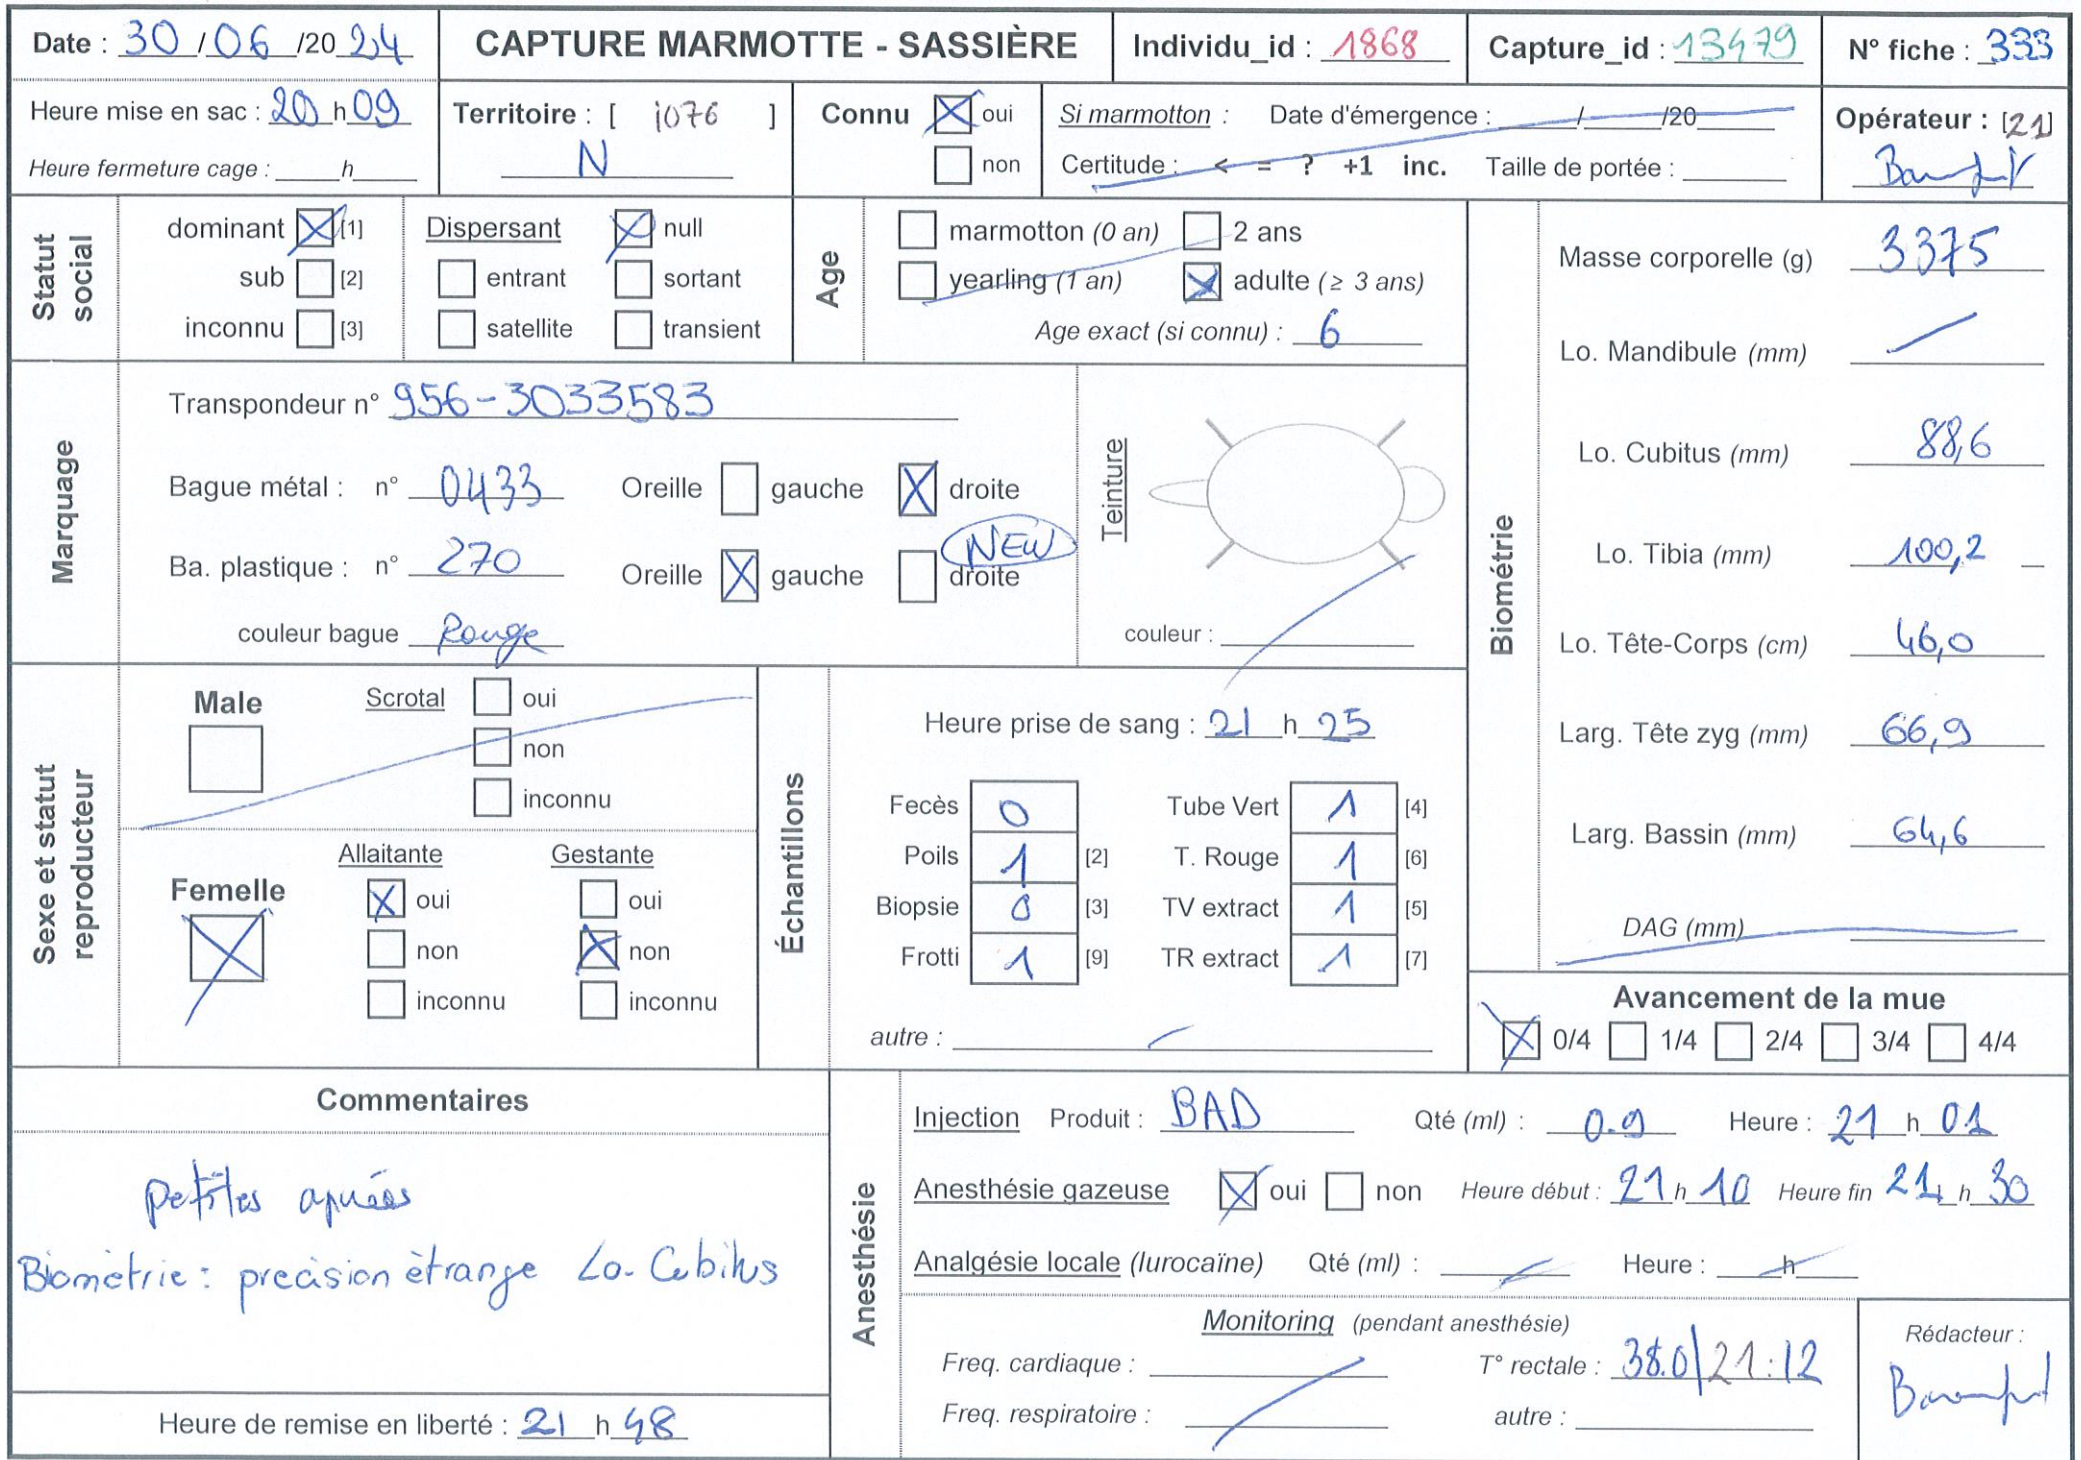 Date : 30 / 06 /20 24 CAPTURE MARMOTTE - SASSIÈRE Individu_id : 1868 Capture_id : 13479 N° fiche : 333
Heure mise en sac : 20 h 09 Territoire : [ i076 ] Connu oui Si marmotton : Date d'émergence : / /20 Opérateur : [21]
Heure fermeture cage : h N non Certitude : < = ? +1 inc. Taille de portée :
Statut social
dominant [1] Dispersant null
sub [2] entrant sortant
inconnu [3] satellite transient
Age
marmotton (0 an) 2 ans
yearling (1 an) adulte (≥ 3 ans)
Age exact (si connu) : 6
Marquage
Transpondeur n° 956-3033583
Bague métal : n° 0433 Oreille gauche droite
NEW
Ba. plastique : n° 270 Oreille gauche droite
couleur bague Rouge
Teinture
couleur :
Biométrie
Masse corporelle (g) 3375
Lo. Mandibule (mm)
Lo. Cubitus (mm) 88,6
Lo. Tibia (mm) 100,2
Lo. Tête-Corps (cm) 46,0
Larg. Tête zyg (mm) 66,9
Larg. Bassin (mm) 64,6
DAG (mm)
Sexe et statut reproducteur
Male Scrotal oui
non
inconnu
Femelle Allaitante Gestante
oui oui
non non
inconnu inconnu
Échantillons
Heure prise de sang : 21 h 25
Fecès 0 Tube Vert 1 [4]
Poils 1 [2] T. Rouge 1 [6]
Biopsie 0 [3] TV extract 1 [5]
Frotti 1 [9] TR extract 1 [7]
autre :
Avancement de la mue
0/4 1/4 2/4 3/4 4/4
Commentaires
petites apnées
Biométrie : précision étrange Lo. Cubitus
Heure de remise en liberté : 21 h 48
Anesthésie
Injection Produit : BAD Qté (ml) : 0.9 Heure : 21 h 01
Anesthésie gazeuse oui non Heure début : 21 h 10 Heure fin 21 h 30
Analgésie locale (lurocaïne) Qté (ml) : Heure : h
Monitoring (pendant anesthésie)
Freq. cardiaque : T° rectale : 38.0 | 21:12
Freq. respiratoire : autre :
Rédacteur :